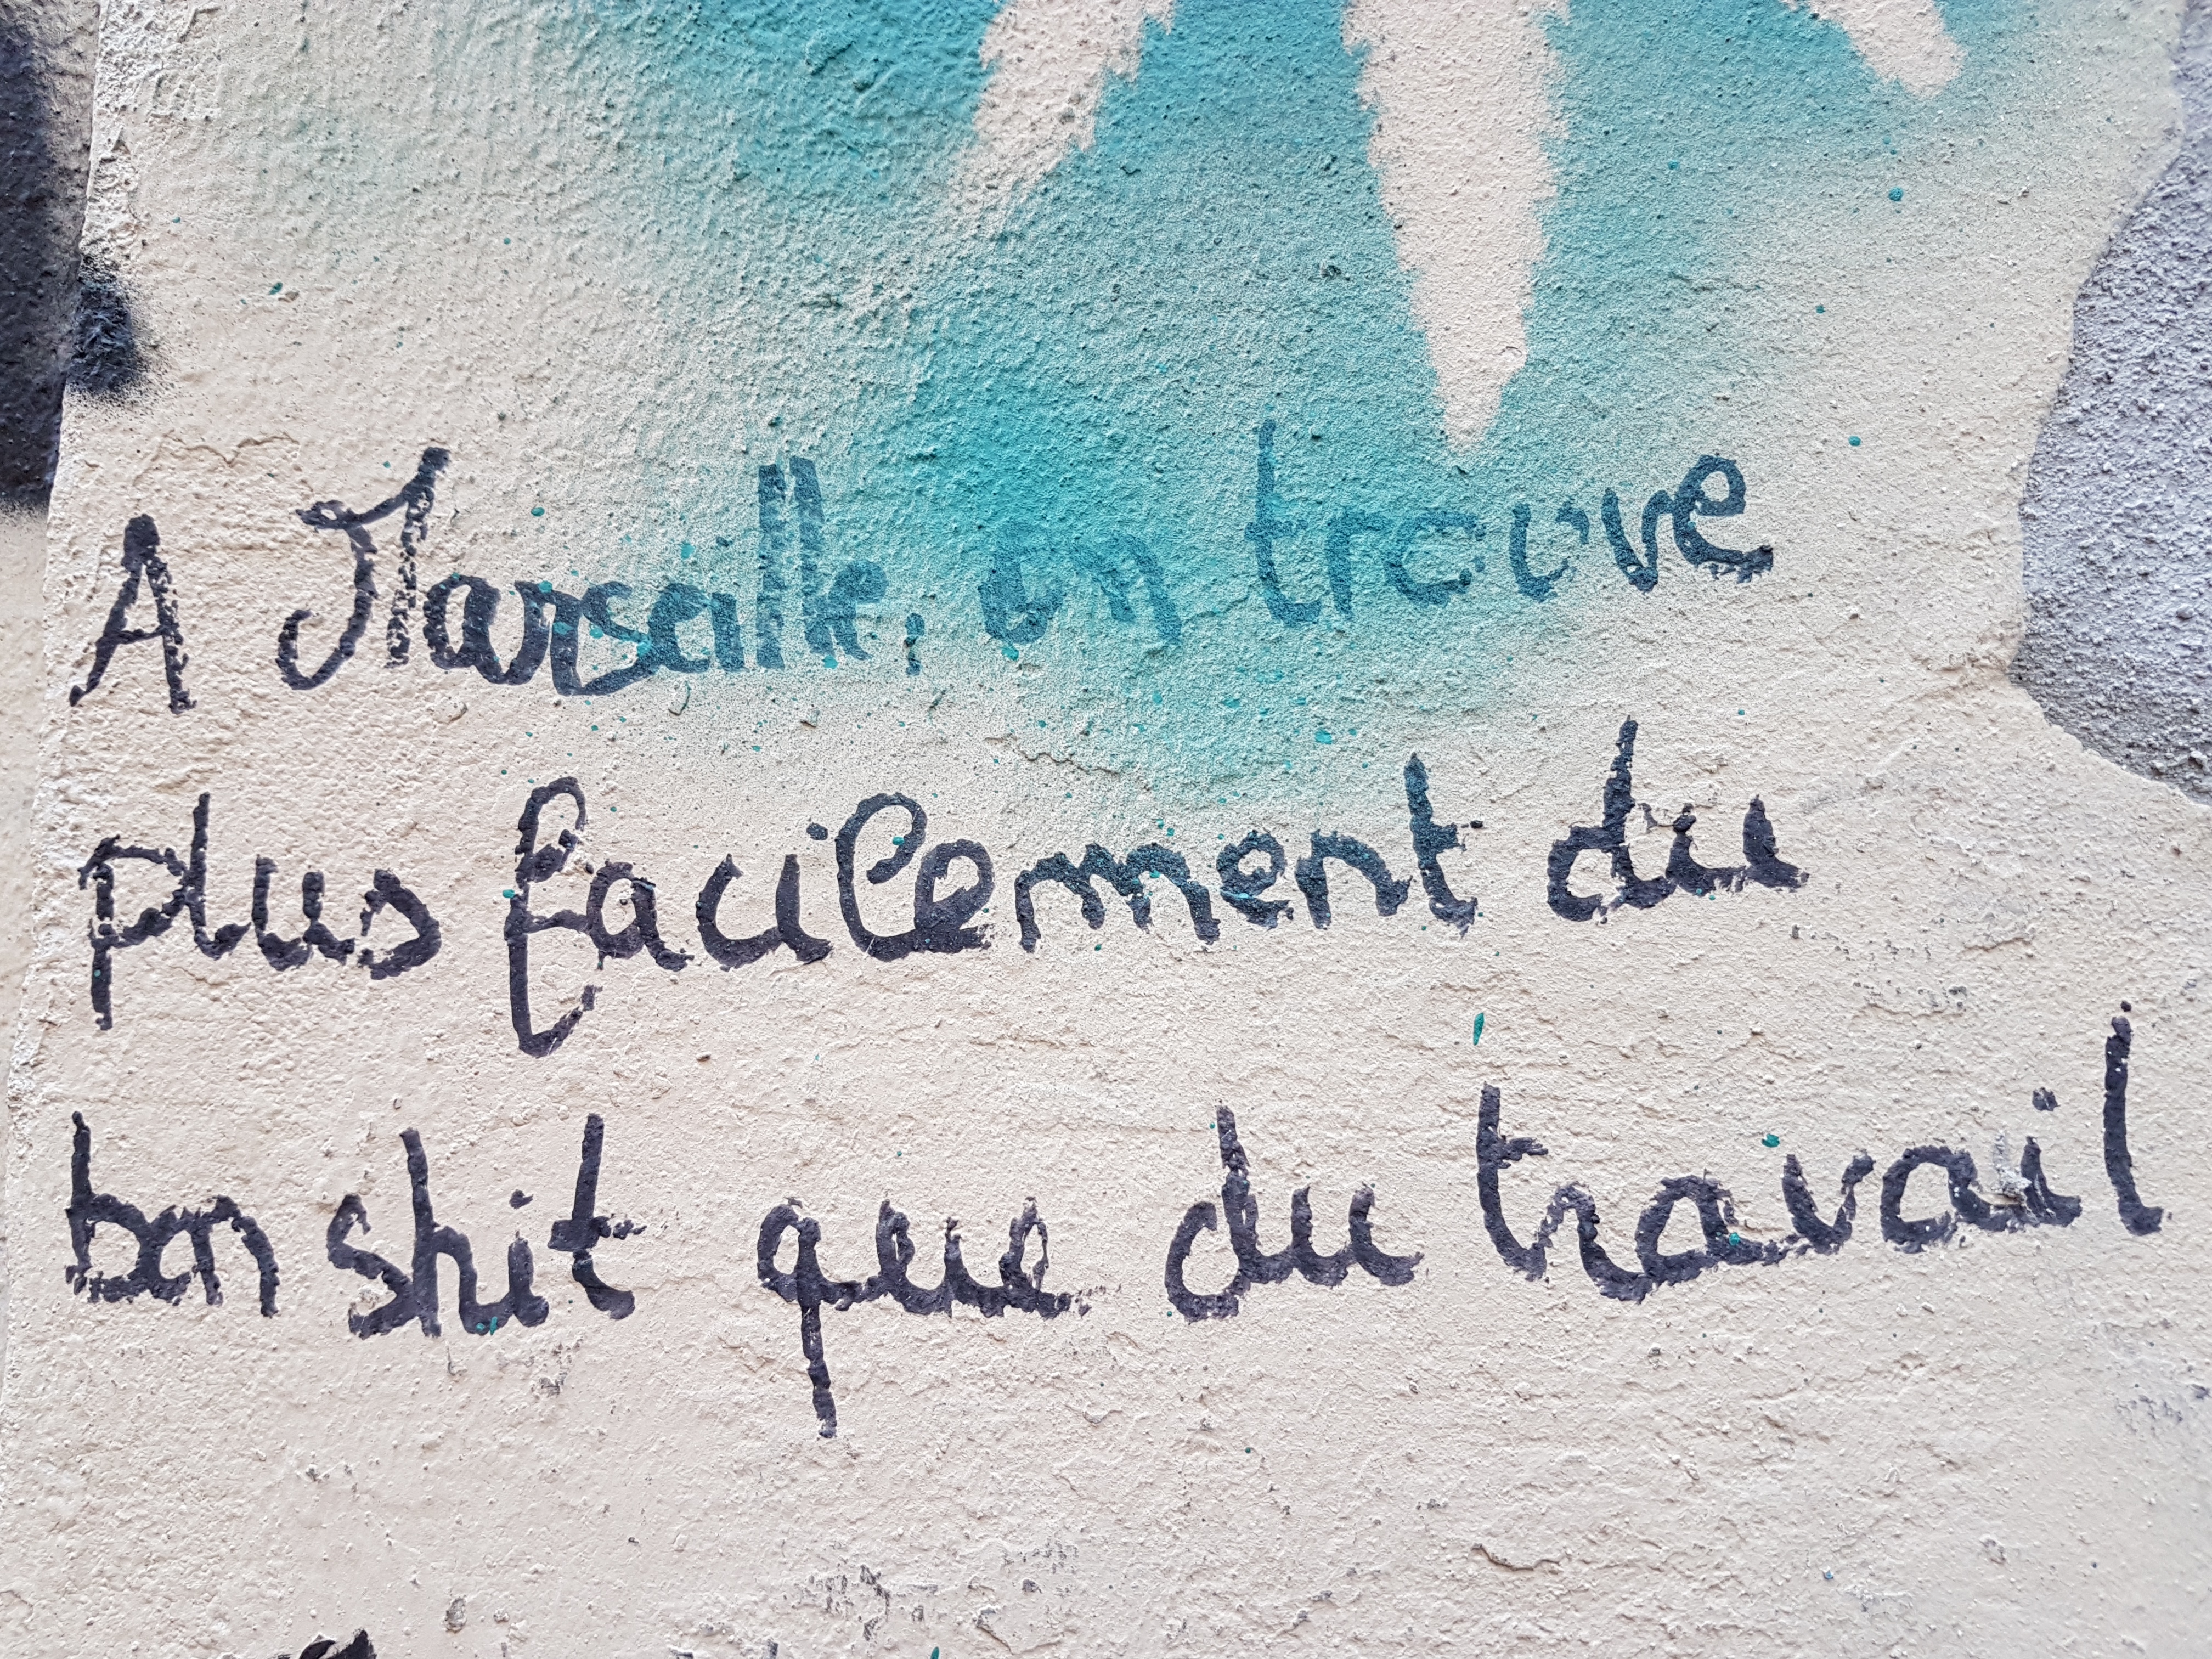 A Marseille, on trouve
plus facilement du
bon shit que du travail